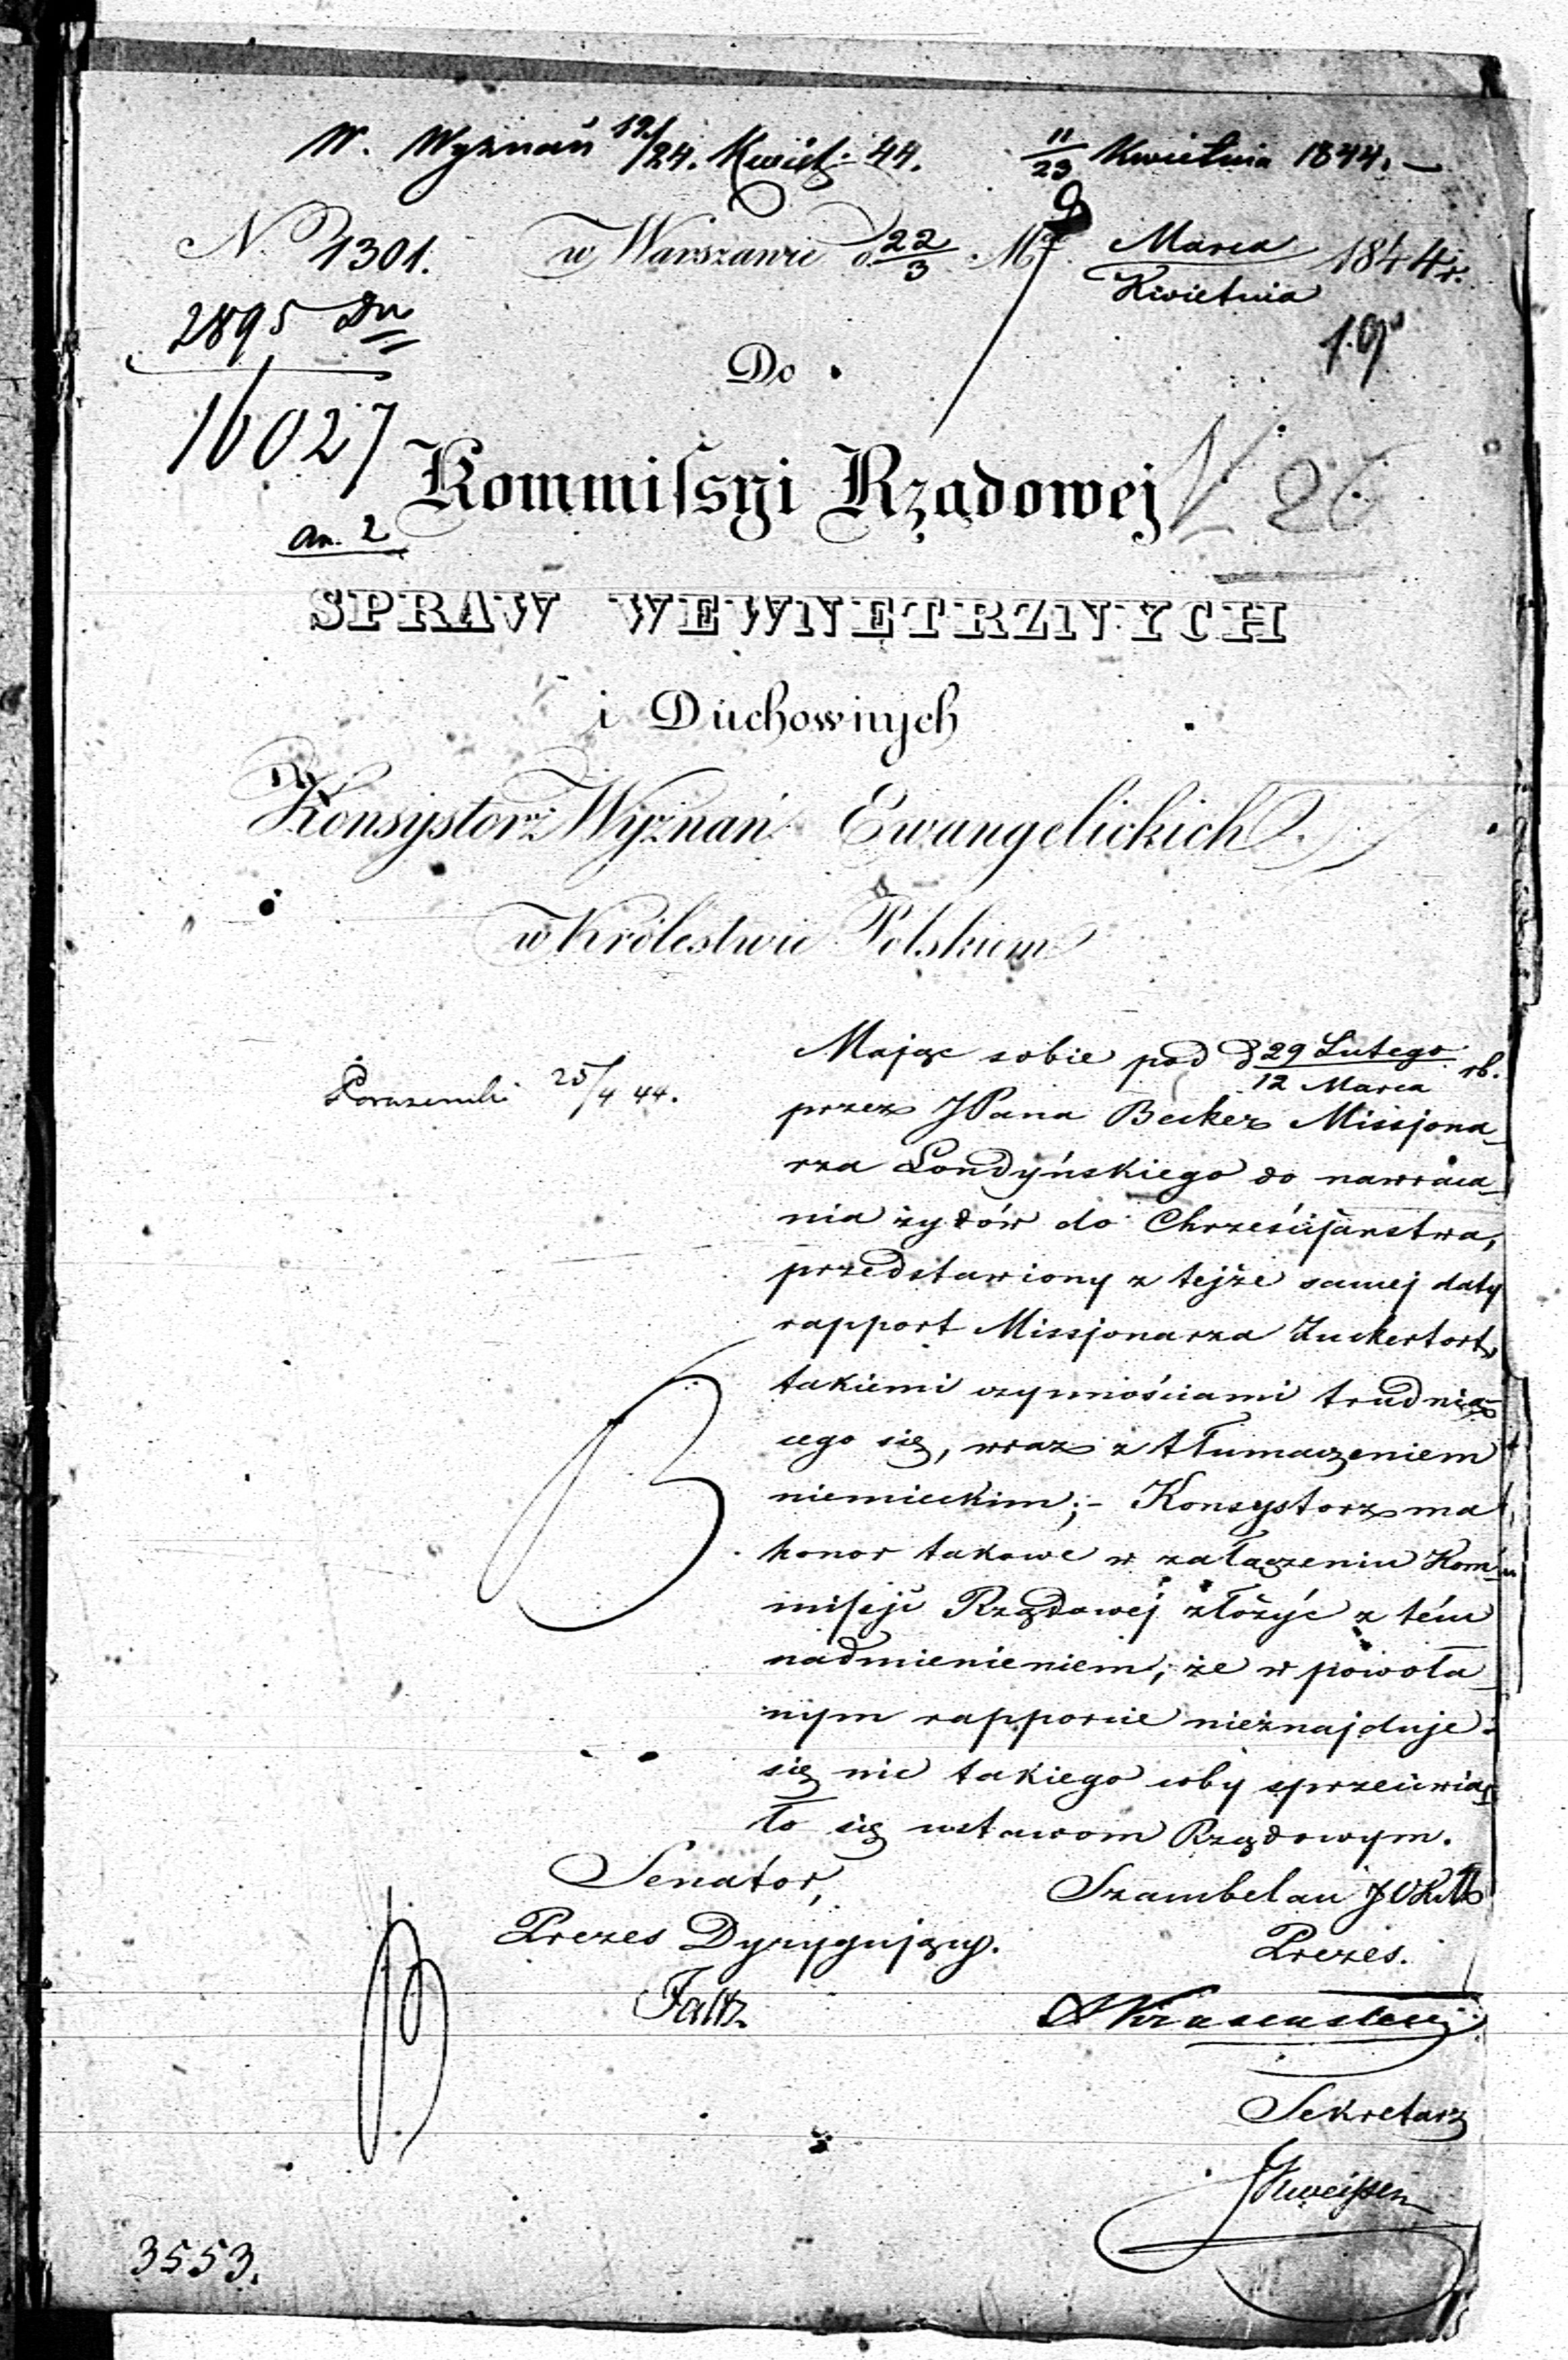 W. Wyznań 12/24. Kwiet. 44.
11/23 Kwietnia 1844. —
N. 1301.
w Warszawie d. 22/3 Mca Marca/Kwietnia 1844 r.
2895
16027
an. 2
Do
Kommiſsyi Rządowej
26
SPRAW WEWNĘTRZNYCH
i Duchownych
Konsystorz Wyznań Ewangelickich
w Królestwie Polskiem
25/4 44.
Mając sobie pod d 29 Lutego/12 Marca rb.
przez JPana Becker Missjona-
rza Londyńskiego do nawraca-
nia żydów do Chrześcijaństwa,
przedstawiony z tejże samej daty
rapport Missjonarza Zuckertort,
takiemi czynnościami trudnią-
cego się, wraz z tłumaczeniem
niemieckim; - Konsystorz ma
honor takowe w załączeniu Kom-
miſsji Rządowéj złożyć z tém
nadmienieniem, że w powoła-
nym rapporcie nieznajduje
się nic takiego coby sprzeciwia-
ło się ustawom Rządowym.
Senator,
Prezes Dyrygujący.
Faltz
Szambelan JCKM
Prezes.
Sekretarz
3553.